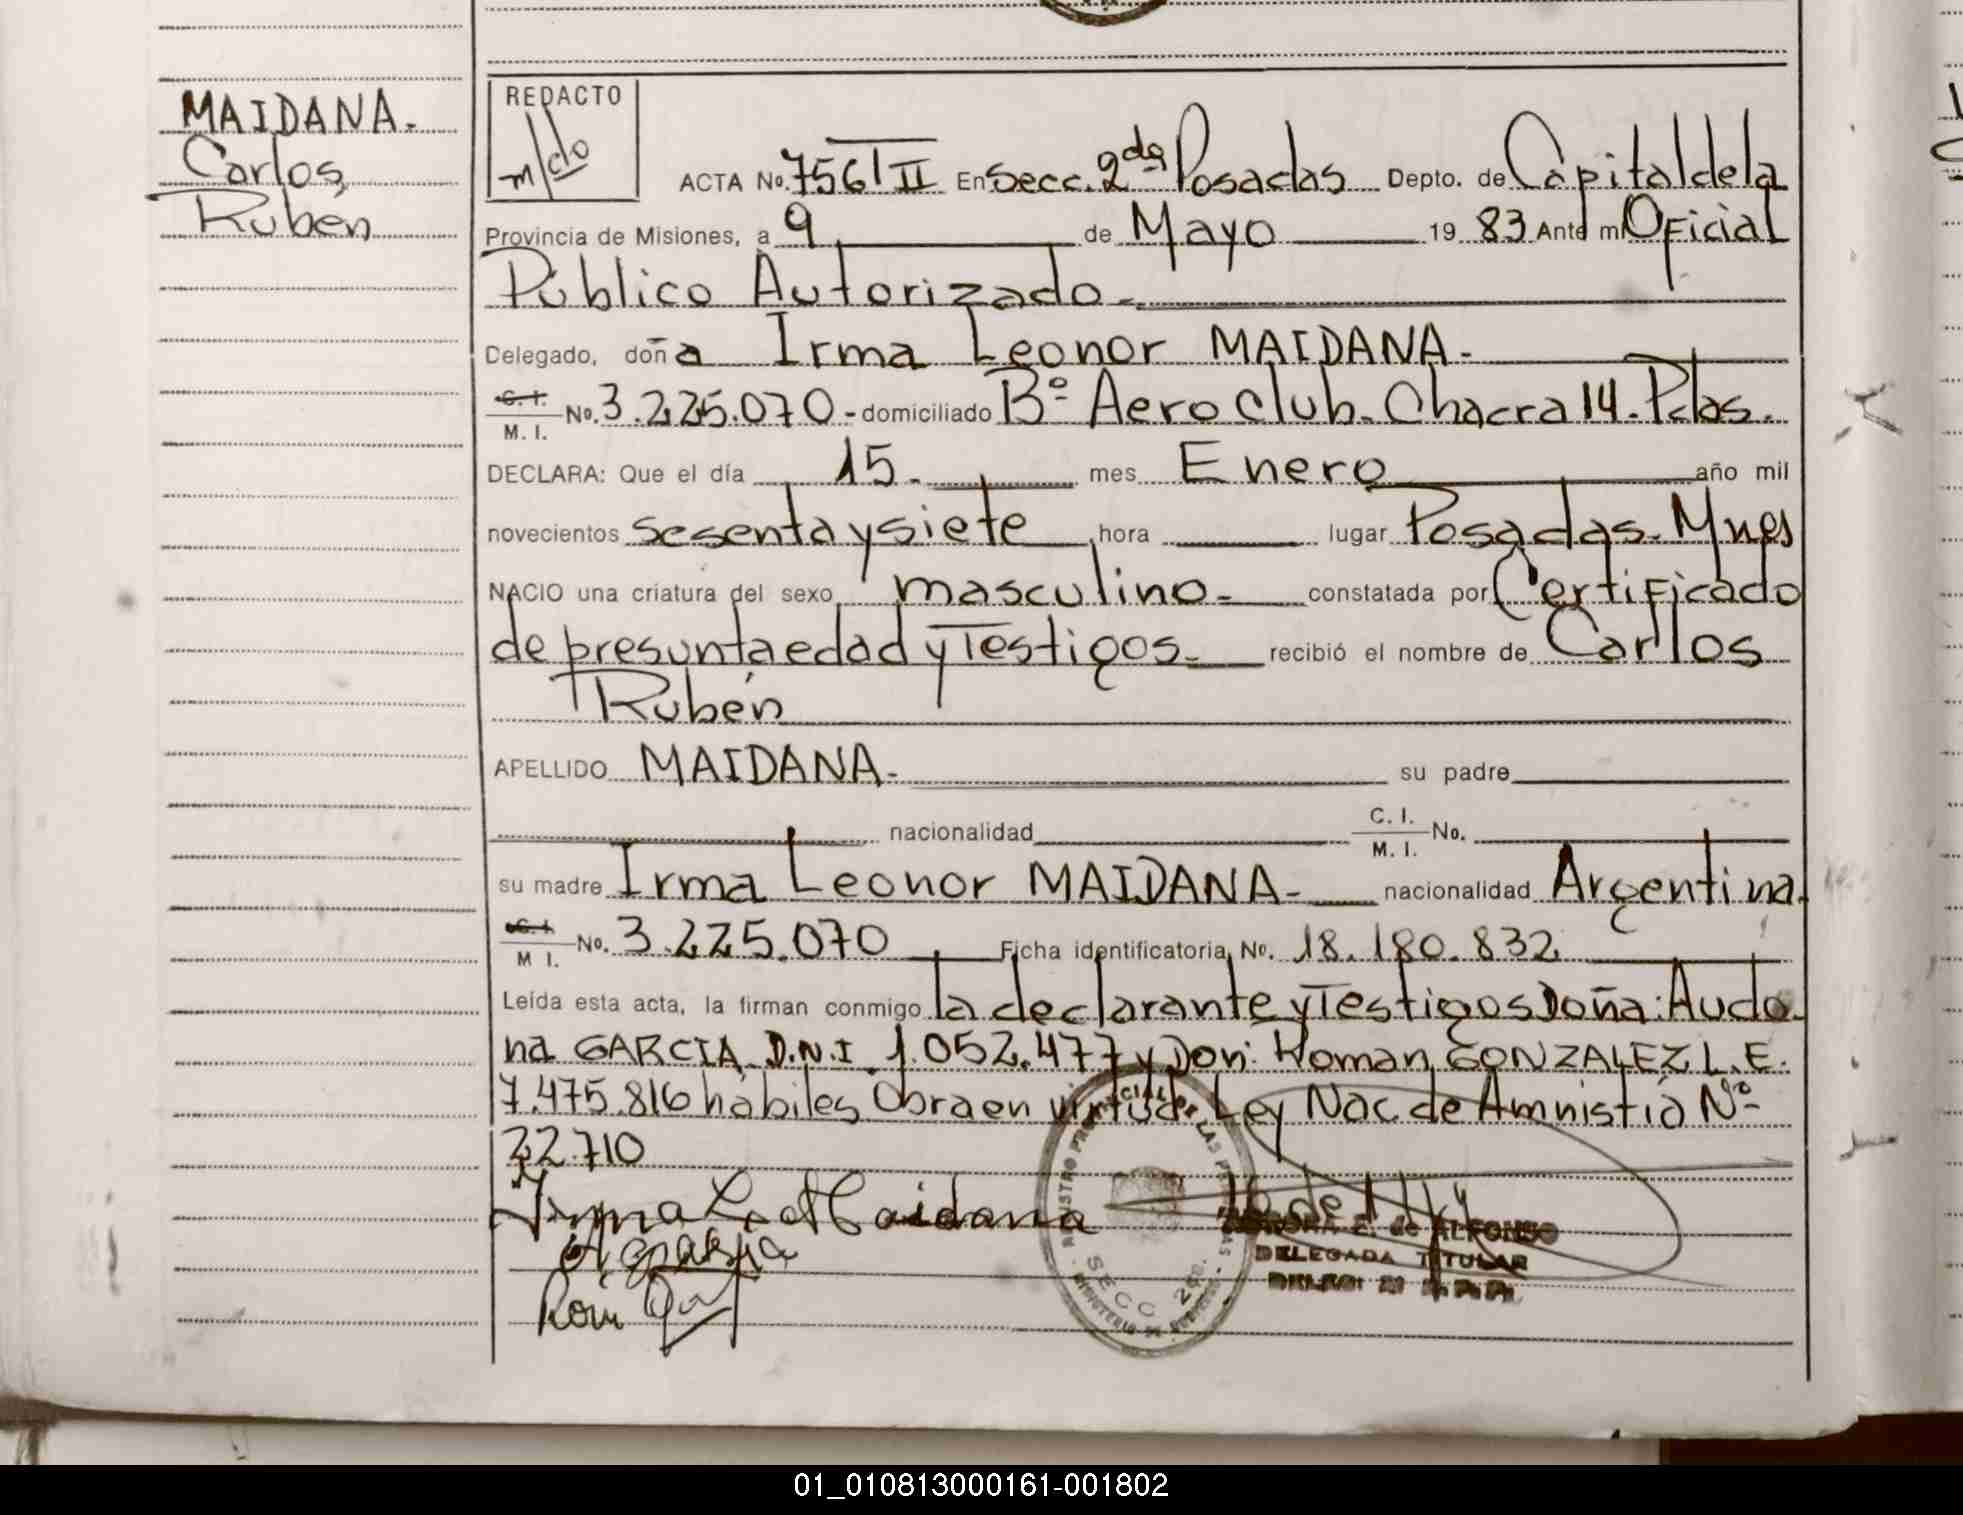 MAIDANA.
Carlos
Rubén
REDACTO
ACTA No. 756 T II En Secc. 2da Posadas Depto. de Capital de la
Provincia de Misiones, a 9 de Mayo 19 83 Ante mi Oficial
Público Autorizado-
Delegado, doña Irma Leonor MAIDANA-
C. I.
M. I. No. 3.225.070- domiciliado Bº Aero Club. Chacra 14. Pdas.
DECLARA: Que el día 15. mes Enero año mil
novecientos sesenta y siete hora lugar Posadas. Mnes
NACIO una criatura del sexo masculino- constatada por Certificado
de presunta edad y Testigos- recibió el nombre de Carlos
Rubén
APELLIDO MAIDANA- su padre
nacionalidad C. I.
M. I. No.
su madre Irma Leonor MAIDANA- nacionalidad Argentina.
C. I.
M I. No. 3.225.070 Ficha identificatoria No. 18.180.832
Leída esta acta, la firman conmigo la declarante y Testigos Doña: Audo
na GARCIA D.N.I 1.052.477 y Don: Roman GONZALEZ L.E.
7.475.816 hábiles Obra en virtud Ley Nac. de Amnistía Nº
22.710
Irma L. de Maidana
A garsia
REGISTRO PROVINCIAL DE LAS PERSONAS
SECC 2da.
MINISTERIO DE GOBIERNO
E. de ALFONSO
DELEGADA TITULAR
01_010813000161-001802